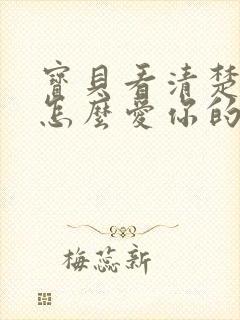 寶貝看清楚
怎麼愛你的
梅蕊新